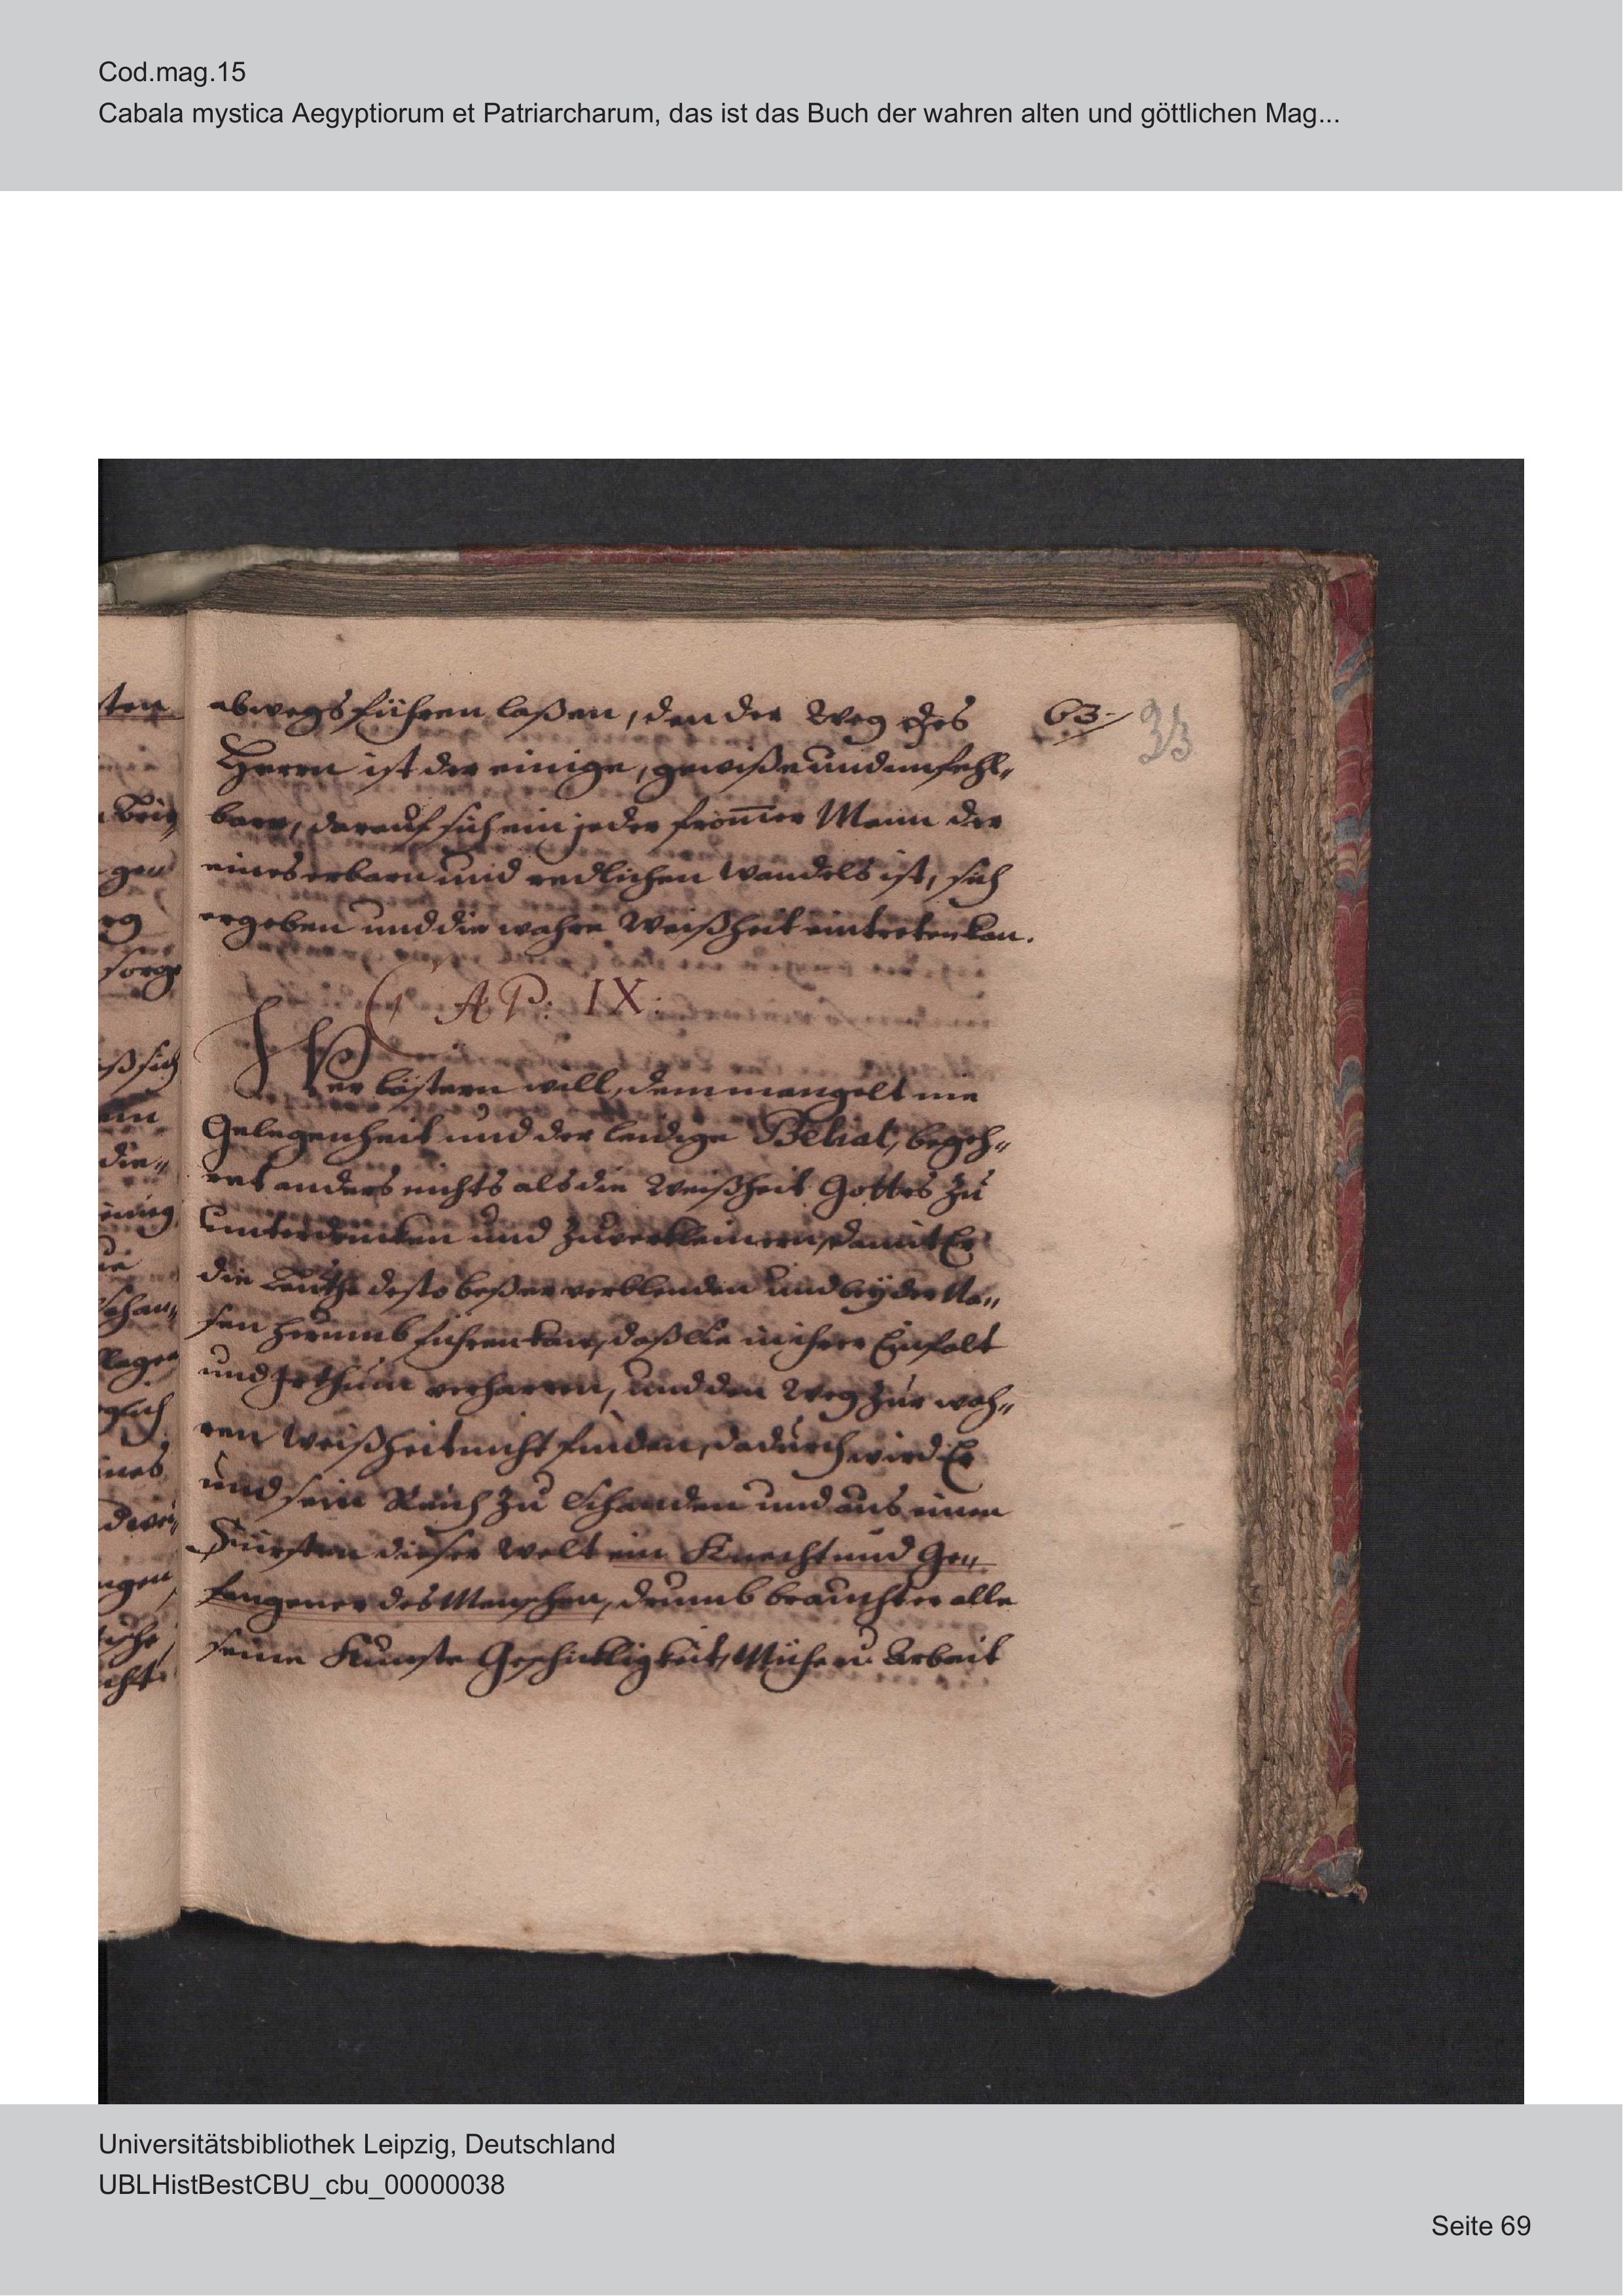 Cod.mag.15
Cabala mystica Aegyptiorum et Patriarcharum, das ist das Buch der wahren alten und göttlichen Mag...
abwegs führen laßen, den der Weg des
63.
33
Herrn ist der einige, gewiße und unfehl„
bare, darauf sich ein jeder from̄er Mann der
eines erbarn und redlichen Wandels ist, sich
ergeben und die wahre Weißheit eintreten kan.
CAP: IX:
Wer lästern will, dem mangelt nie
Gelegenheit und der leidige Belial, begeh„
ret anders nichts als die Weißheit Gottes zu
unterdrucken und zuverkleinern, damit Er
die Leuthe desto beßer verblenden und beÿ der Na„
sen herumb führen kan, daß sie in ihrer Einfalt
und Irthum verharren, und den Weg zur wah„
ren Weißheit nicht finden, dadurch wird Er
und sein Reich zu Schanden und aus einem
Fürsten dieser Welt ein Knecht und Ge„
fangener des Menschen, drumb braucht er alle
seine Künste Geschickligkeit, Mühe u Arbeit
ten
gen
sorge
die„
ines
Universitätsbibliothek Leipzig, Deutschland
UBLHistBestCBU_cbu_00000038
Seite 69